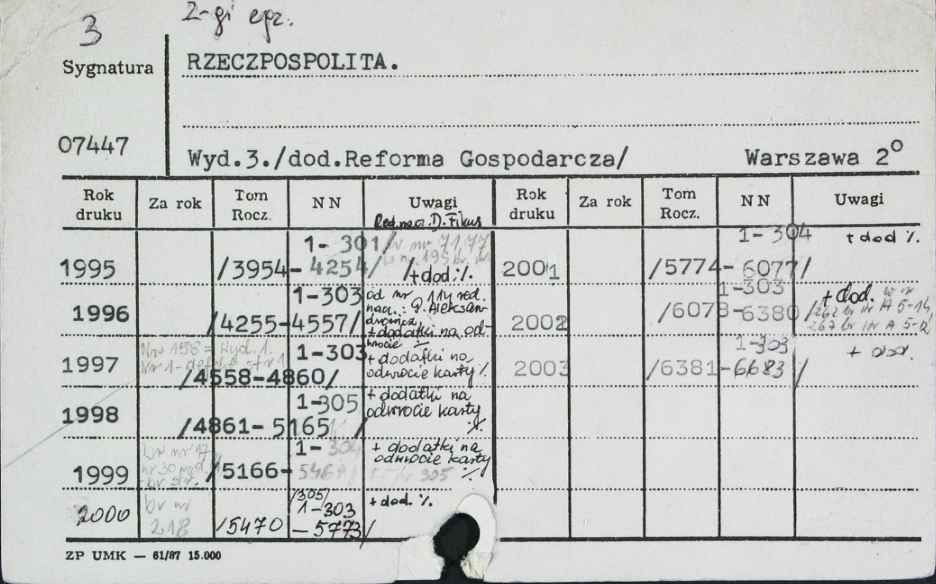 3 2-gi egz.
Sygnatura RZECZPOSPOLITA.
07447
Wyd.3./dod.Reforma Gospodarcza/ Warszawa 2°
Rok druku Za rok Tom Rocz. NN Uwagi Rok druku Za rok Tom Rocz. NN Uwagi
Red. nacz. D. Fikus
1995 /3954-4254/ 1-301 + dod. %
1996 /4255-4557/ 1-303 od nr 114 red. nacz.: P. Aleksandrowicz + dodatki na odwrocie
1997 /4558-4860/ 1-303 + dodatki na odwrocie karty %
1998 /4861-5165/ 1-305 + dodatki na odwrocie karty %
1999 /5166- 1-304 + dodatki na odwrocie karty %
2000 br nr 218 /5470-5773/ /305/ 1-303 + dod. %
2001 /5774-6077/ 1-304 + dod %.
2002 /6078-6380/ 1-303 + dod.
2003 /6381-6683/ 1-303 + dod.
ZP UMK — 61/87 15.000